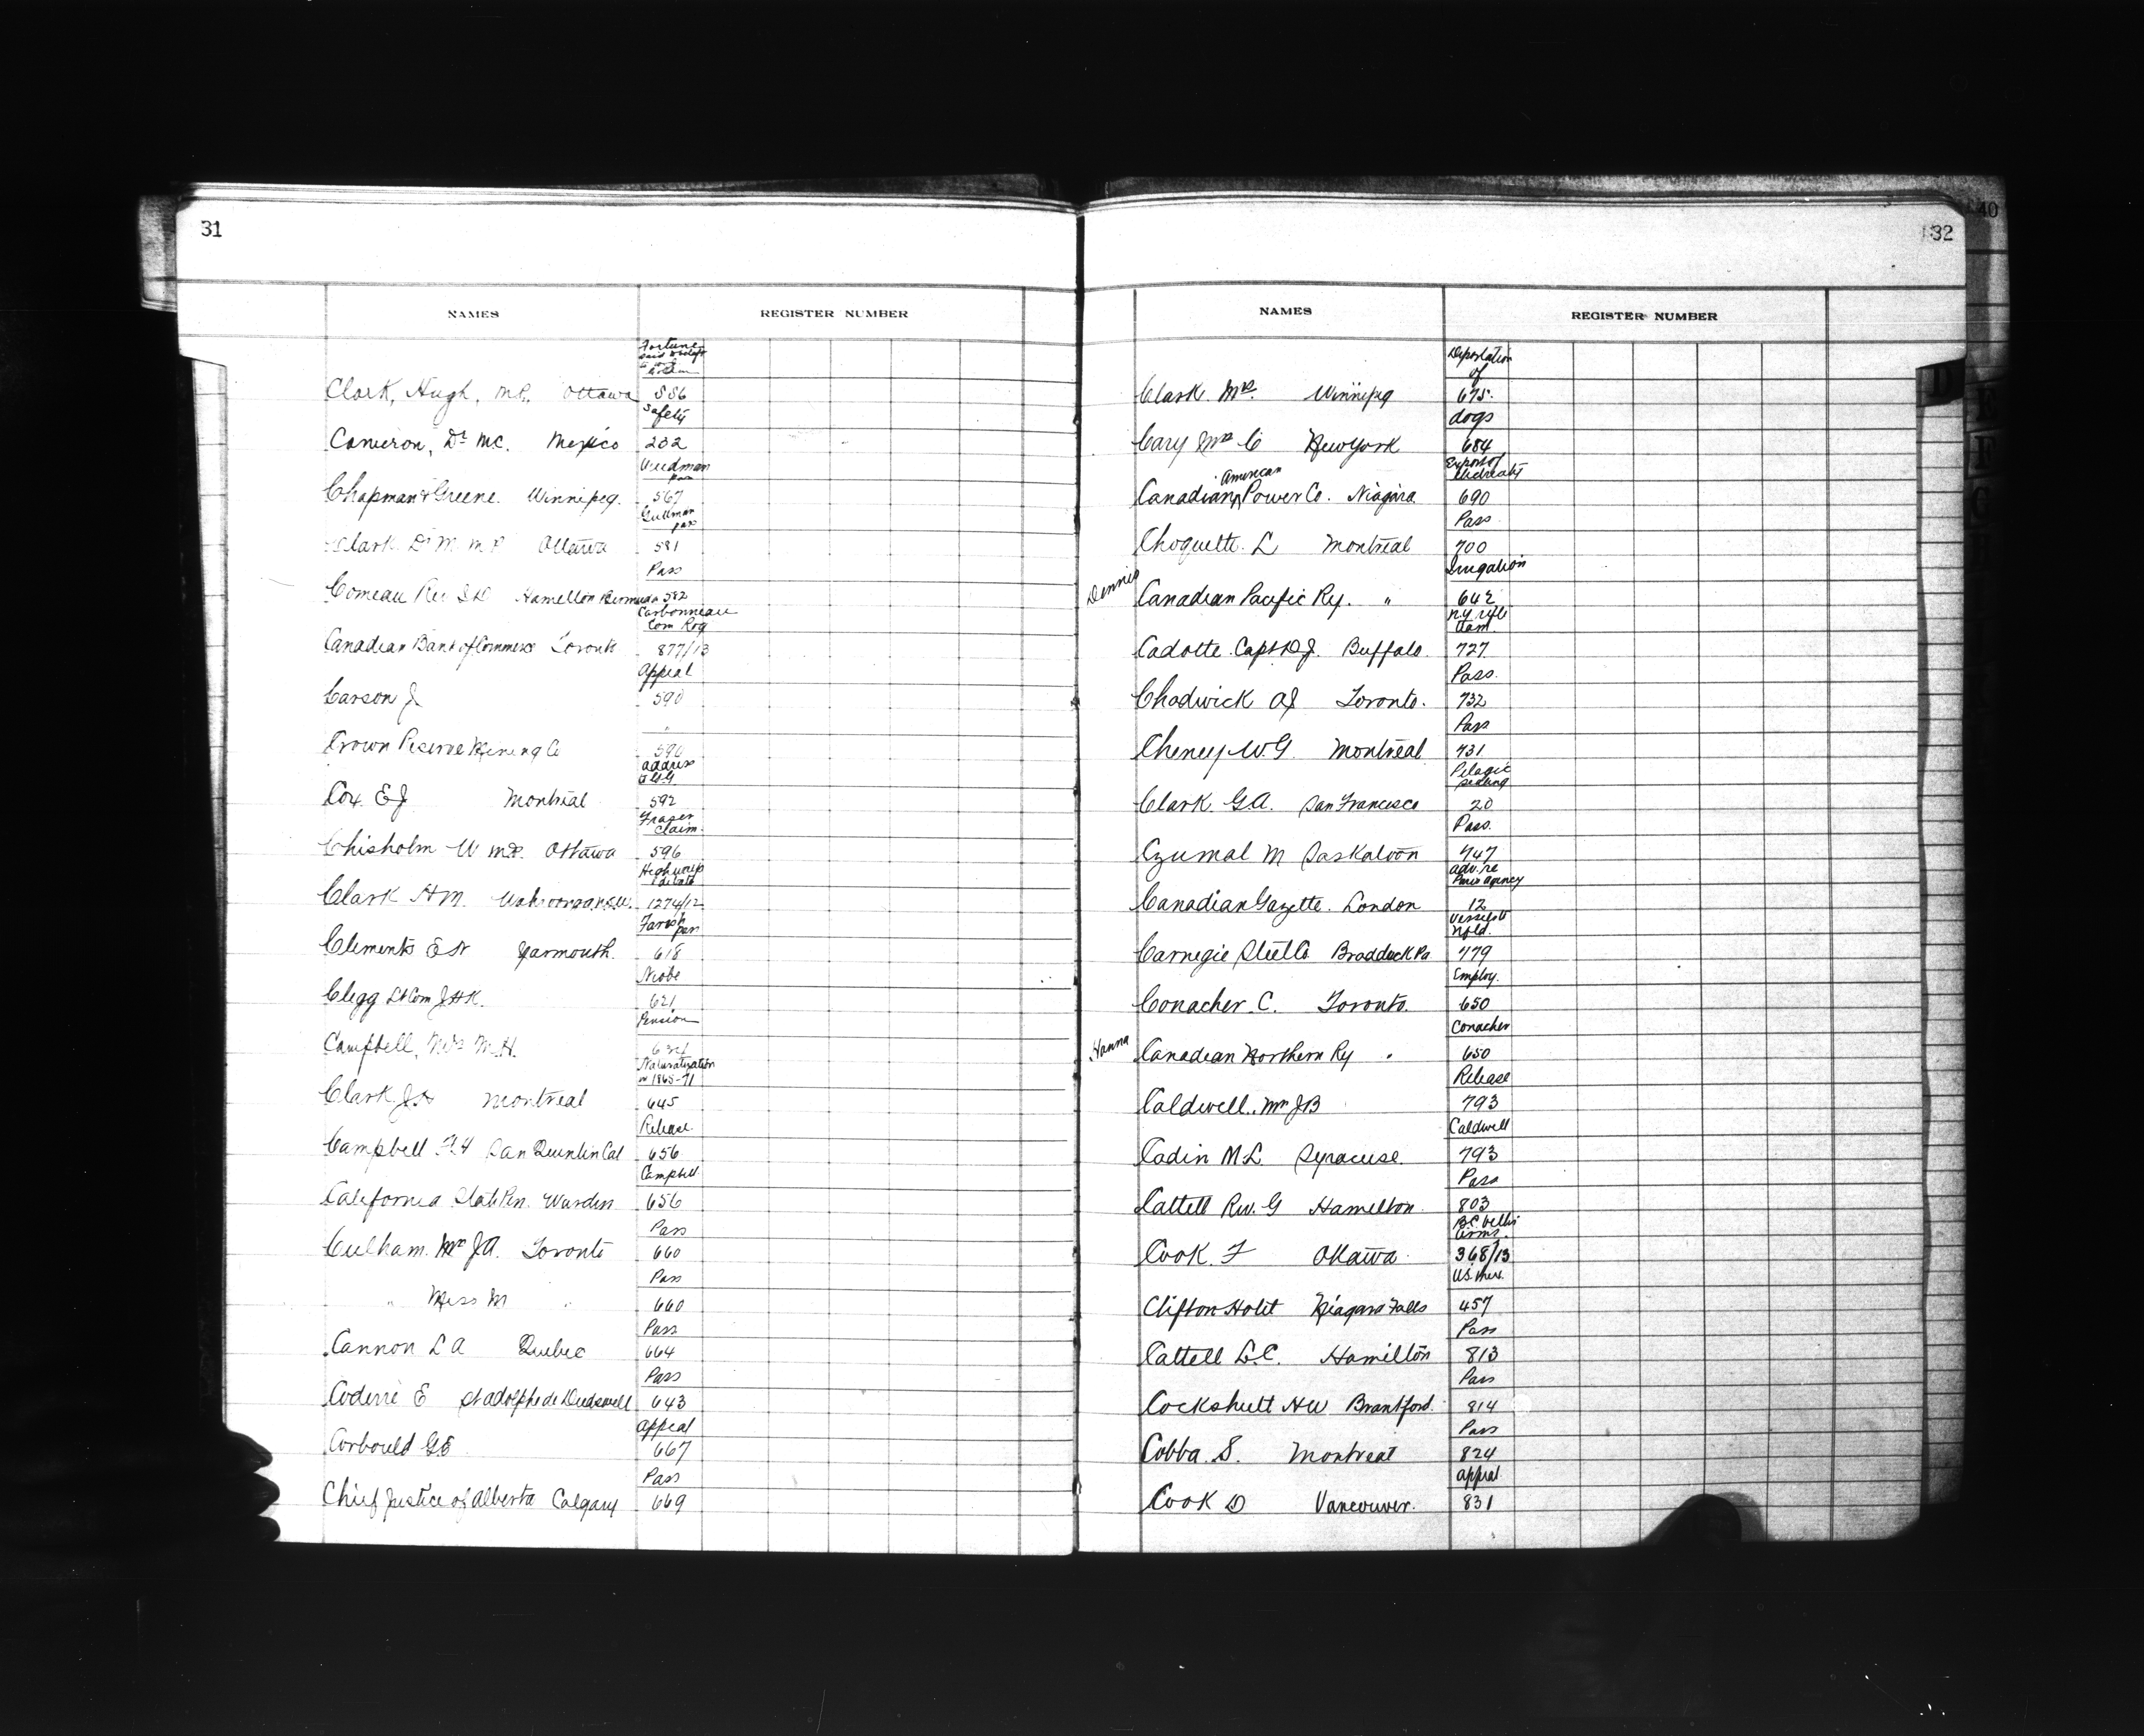 31
NAMES REGISTER NUMBER
Fortune
Clark, Hugh, M.P. Ottawa 556
Safety
Cameron, Dr MC. Mexico 232
Weedman
pass
Chapman & Greene. Winnipeg. 567
Gullman
pass
Clark Dr M. M.P. Ottawa 581
Pass
Comeau Rev Hamilton Bermuda 582
Carbonneau
Com Rog
Canadian Bank of Commerce Toronto 877/13
Appeal
Carson J 590
"
Crown Reserve Mining Co 590
Address
Cox E J Montreal 592
Fraser
claim
Chisholm W M.P. Ottawa 596
High
Clark H M. 1274/12
Farish
pass
Clements E H Yarmouth. 618
Niobe
Clegg Lt Com J H K. 621
Pension
Campbell, Mrs M.H.
Naturalization
in 1865-71
Clark J Montreal 645
Release
Campbell San Quentin Cal 656
Campbell
California State Pen. Warden 656
Pass
Culham. Mrs J A. Toronto 660
Pass
" Miss M " 660
Pass
Cannon L A Quebec 664
Pass
Coderre E St Adolphe de Dudswell 643
Appeal
Corbould G E 667
Pass
Chief Justice of Alberta Calgary 669
40
32
NAMES REGISTER NUMBER
Deportation
of
Clark. Mrs. Winnipeg 675.
dogs
Cary Mrs C New York 684
Export of
electricity
American
Canadian Power Co. Niagara 690
Pass
Choquette. L Montreal 700
Irrigation
Dennis Canadian Pacific Ry. " 642
Cadotte Capt D J. Buffalo. 727
Pass.
Chadwick A J Toronto. 732
Pass
Cheney W.G Montreal 731
Pelagic
sealing
Clark. G.A. San Francisco 20
Pass.
Czumal M Saskatoon 747
adv. re
Paris agency
Canadian Gazette. London 12
Vessels
Nfld.
Carnegie Steel Co Braddock Pa 779
Employ.
Conacher. C. Toronto. 650
Conacher
Hanna Canadian Northern Ry " 650
Release
Caldwell. Mrs J B 793
Caldwell
Cadin M L. Syracuse. 793
Pass
Cattell Rev. G Hamilton 803
Arms.
Cook. F Ottawa 368/13
Clifton Hotel Niagara Falls 457
Pass
Cattell L.C. Hamilton 813
Pass
Cockshutt H W Brantford. 814
Pass
Cobba. S. Montreal 824
appeal
Cook D Vancouver. 831
D
E
F
G